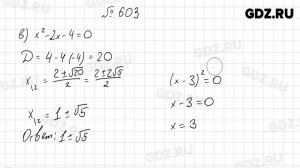 GDZ.RU
№ 603
в) x² - 2x - 4 = 0
D = 4 - 4·(-4) = 20
x₁,₂ = (2 ± √20)/2 = (2 ± 2√5)/2
x₁,₂ = 1 ± √5
Ответ: 1 ± √5
(x - 3)² = 0
x - 3 = 0
x = 3
GDZ.RU